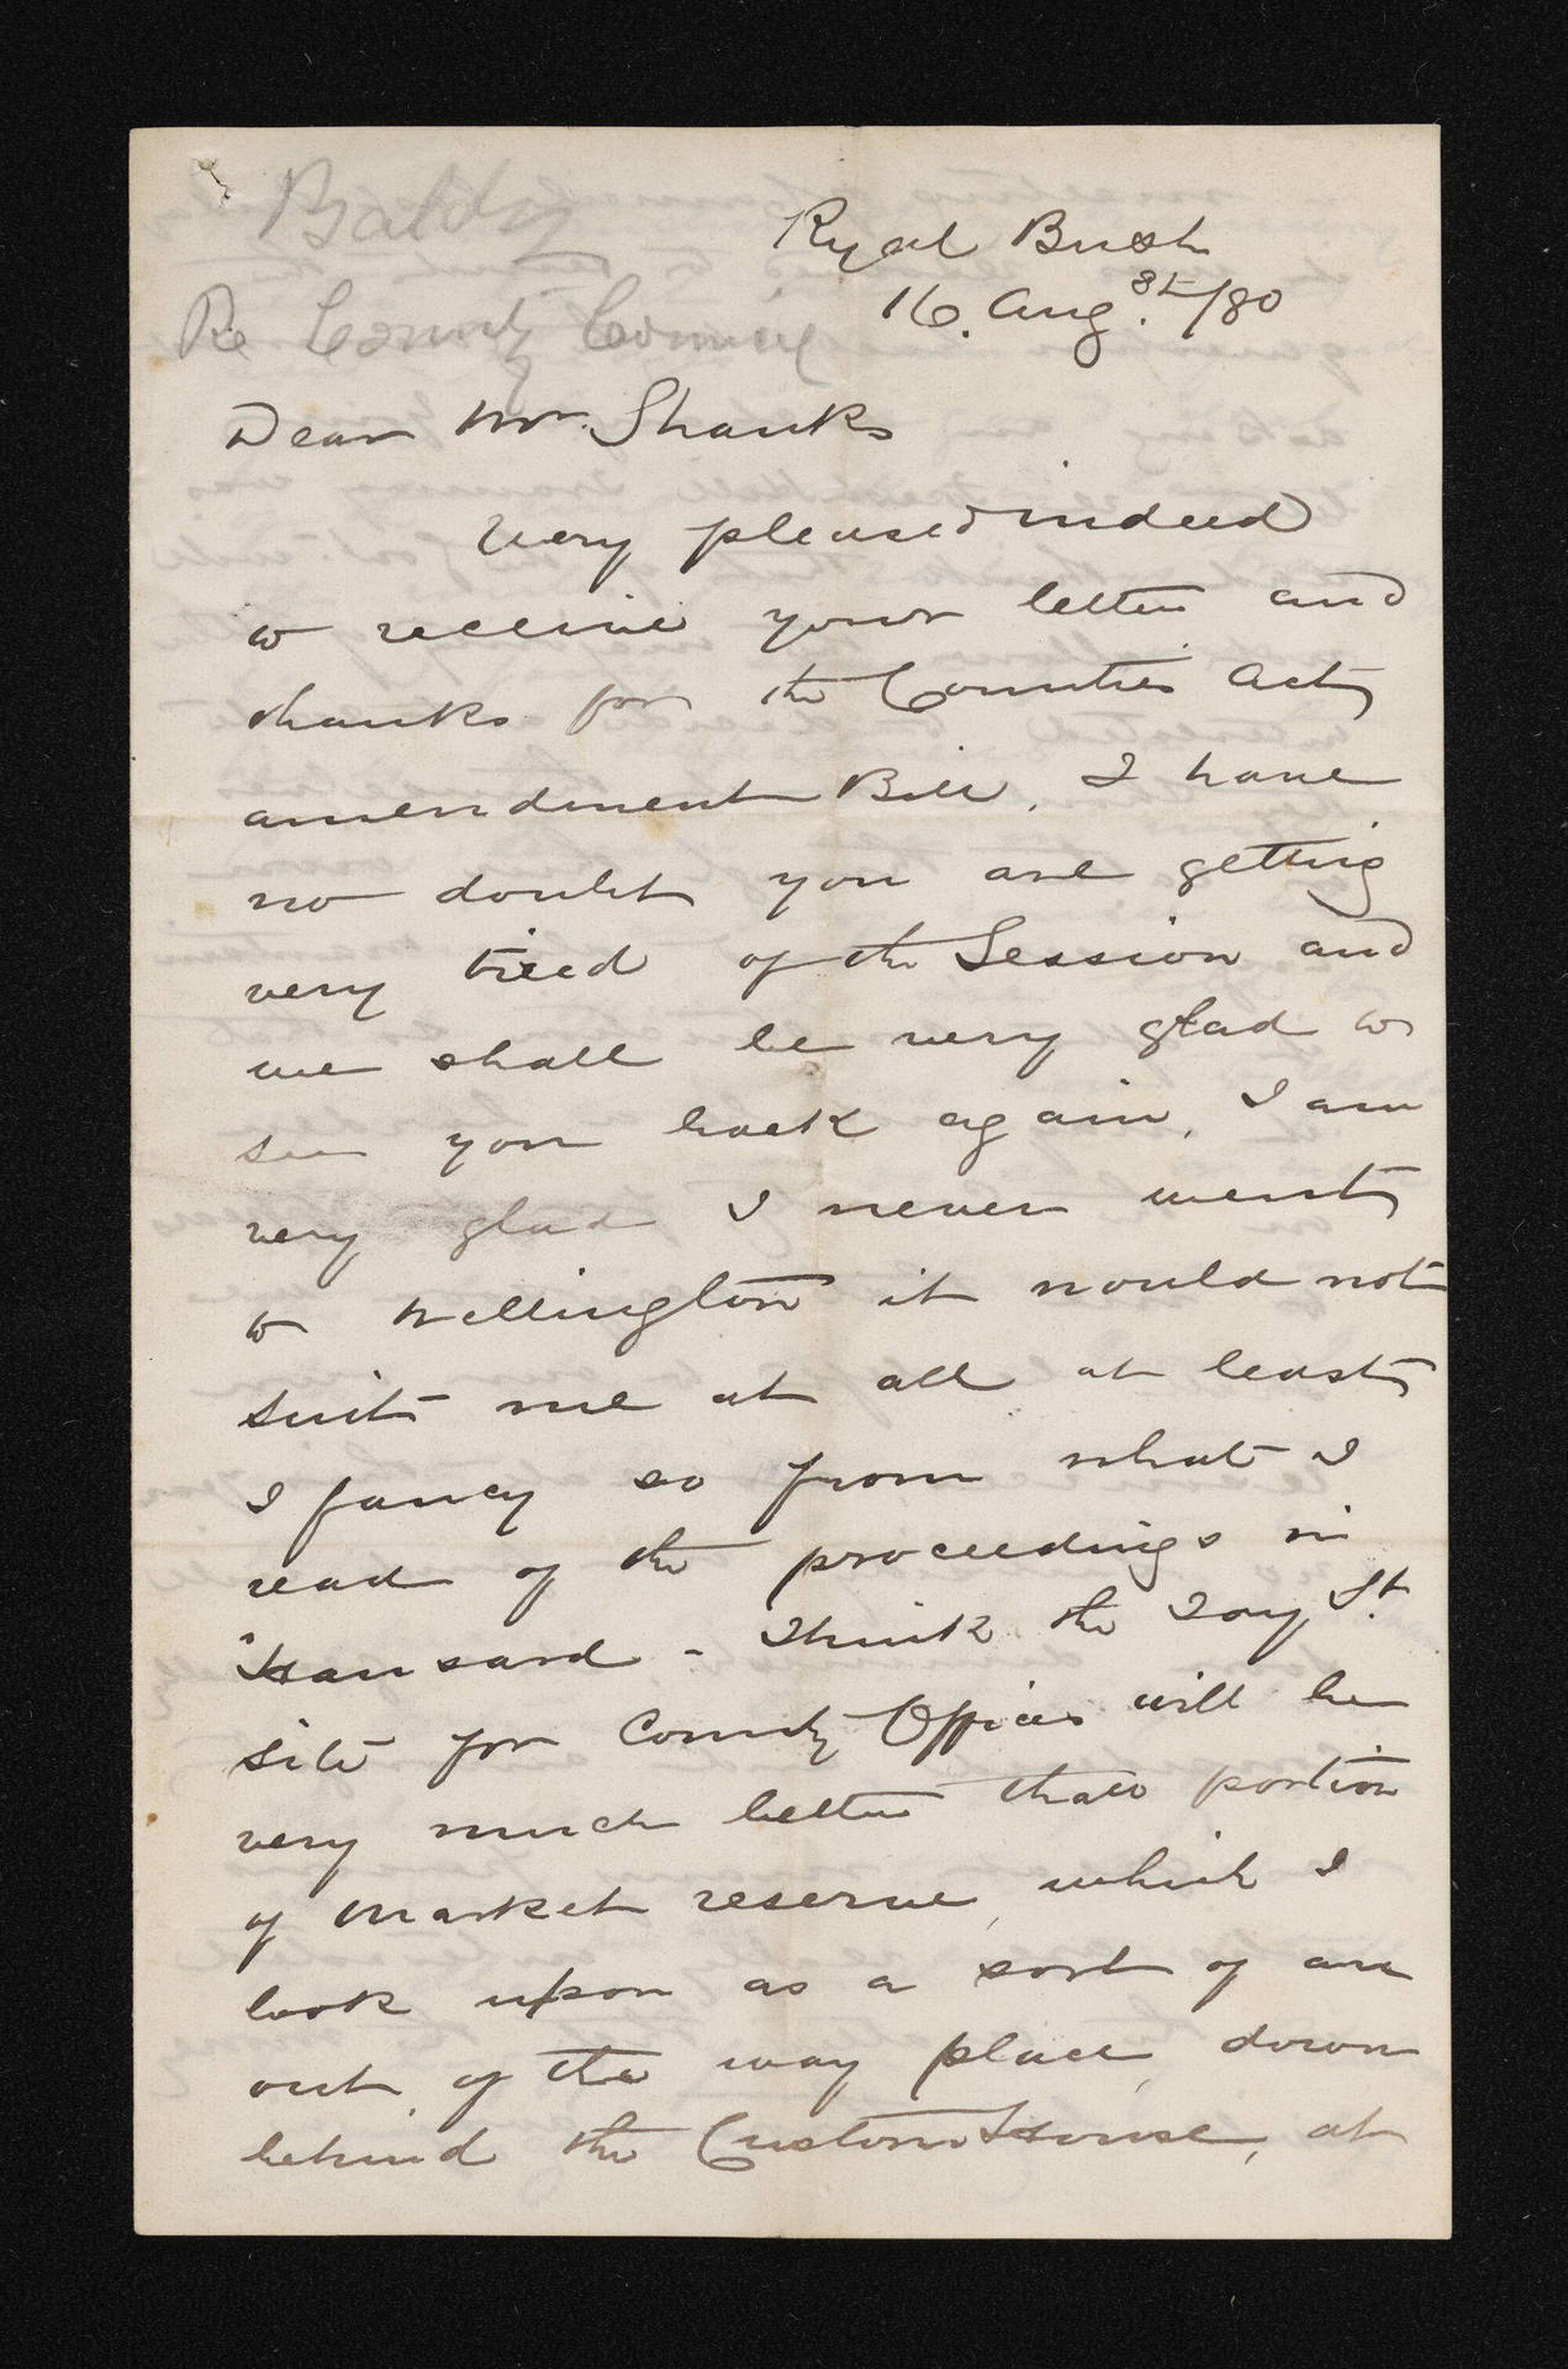 Baldey
Re County Council
Ryal Bush
16. Aug.st/80
Dear Mr. Shanks
Very pleased indeed
to receive your letter and
thanks for the Counties Act
amendment Bill, I have
no doubt you are getting
very tired of the Session and
we shall be very glad to
see you back again, I am
very glad I never went
to Wellington it would not
suit me at all at least
I fancy so from what I
read of the proceedings in
Hansard - Think the Tay St.
site for County Offices will be
very much better than portion
of Market reserve, which I
look upon as a sort of an
out of the way place, down
behind the Custom House, at